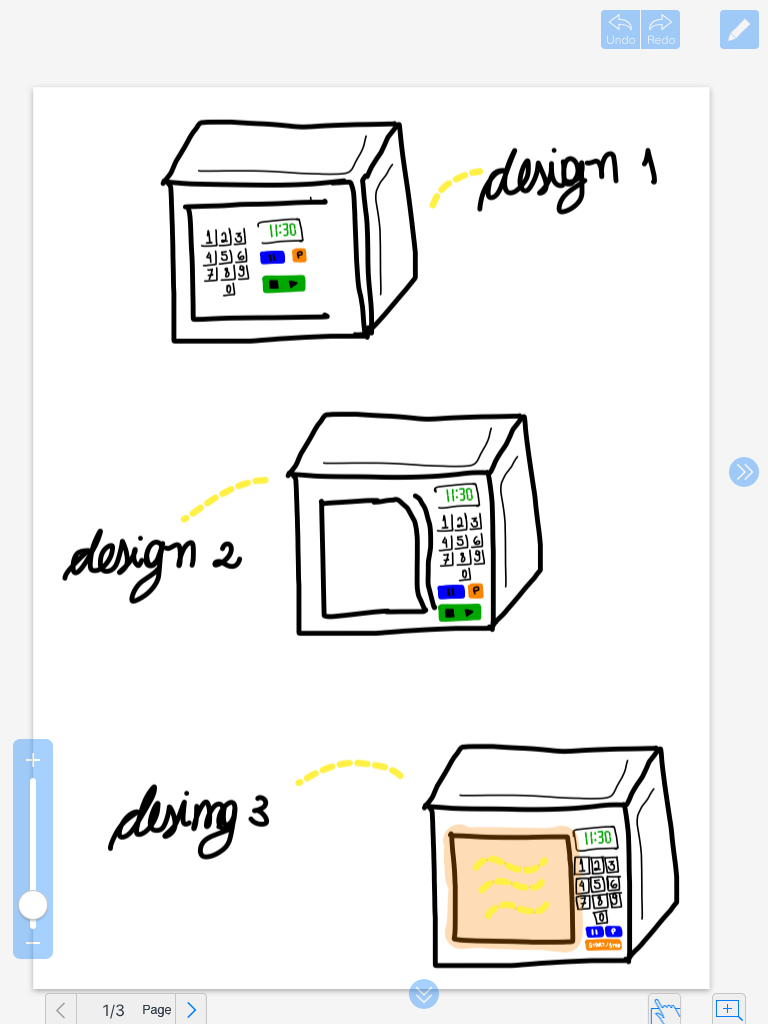 Undo Redo
design 1
11:30
1 2 3
4 5 6
7 8 9
0
P
design 2
11:30
1 2 3
4 5 6
7 8 9
0
P
desimg 3
11:30
1 2 3
4 5 6
7 8 9
0
P
START/STOP
1/3 Page